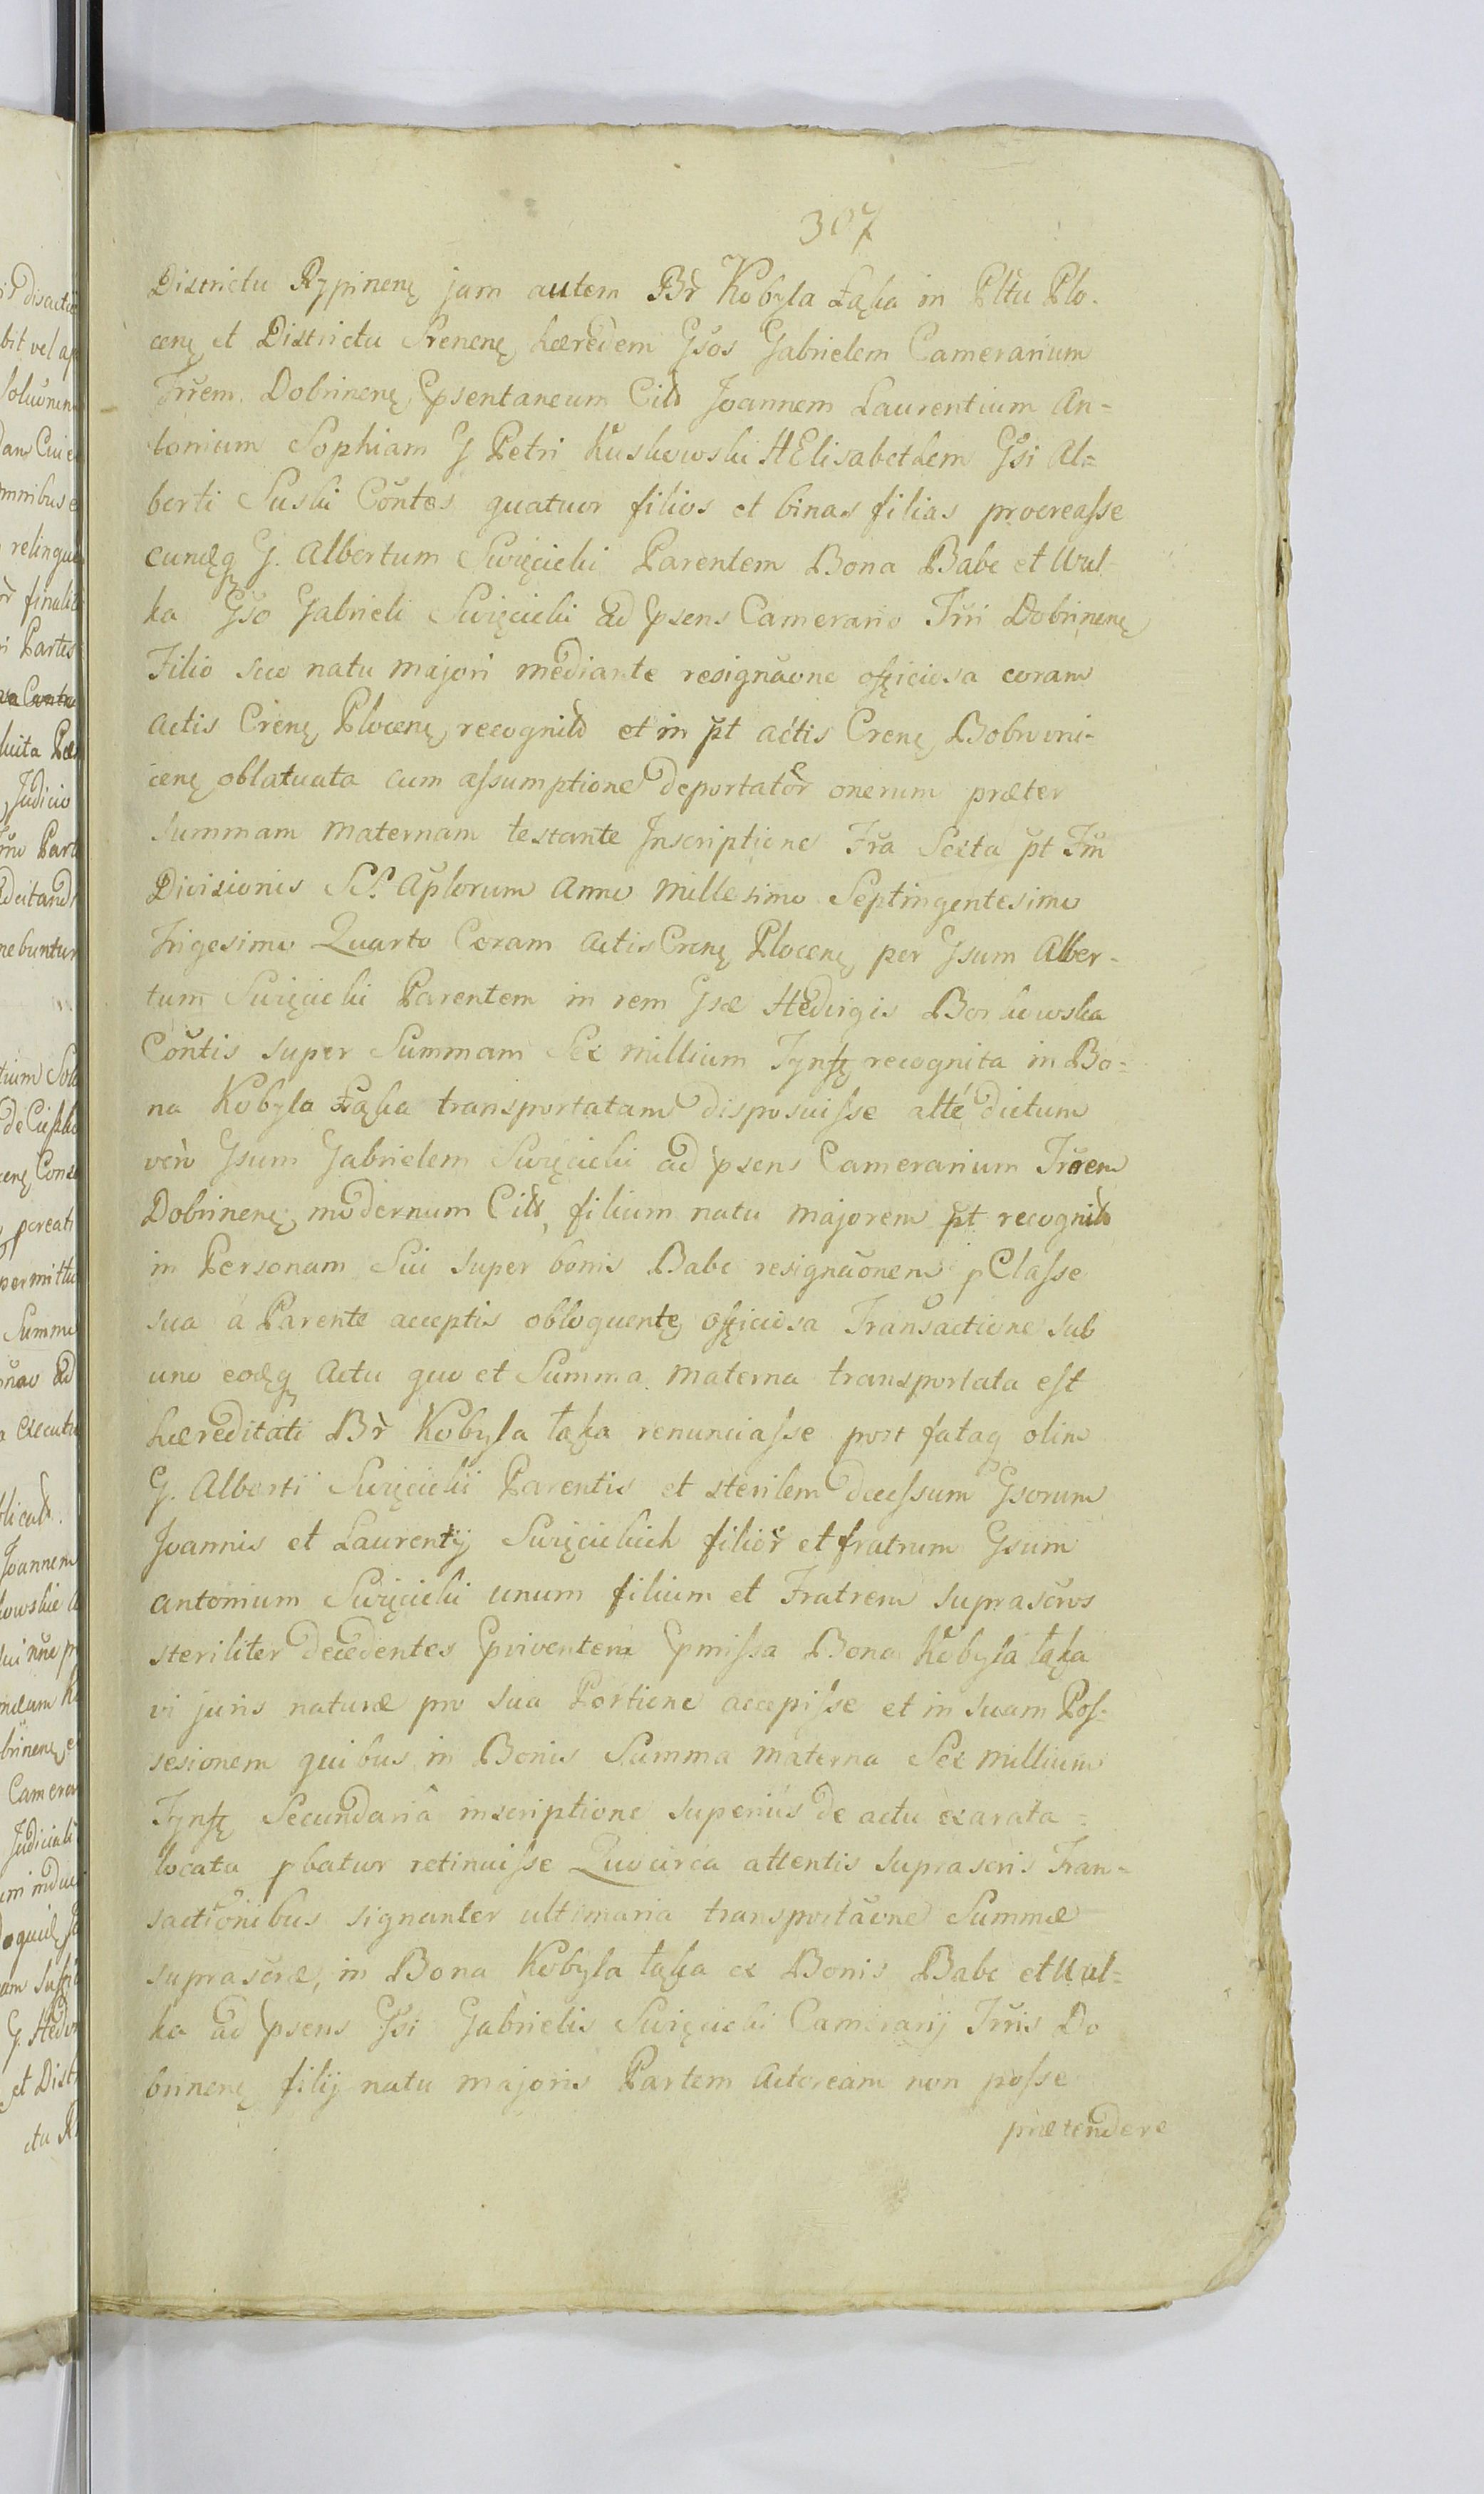 307
Districtu Rypinenę jam autem Br̃ Kobyla Łąka in Pltũ Plo-
cenę et Districtu Srenenę hæredem Gs̃os Gabrielem Camerarium
Tr̃rem. Dobrinenę Psentaneum Citt Joannem Laurentium An=
tonium Sophiam G Petri Kuskowski H Elisabethem Gs̃i Al=
berti Suski Con̄tes quatuor filios et binas filias procreaſse
eundęq G. Albertum Swięcicki Parentem Bona Babe et Wul-
ka Gs̃o Gabrieli Swięcicki ad Psens Camerario Tr̃ri Dobrinenę
Filio suo natu majori mediante resignãone officiosa coram
Actis Crenę Plocenę recognita et in p̃t actis Crenę Bobrowni-
cenę oblatuata cum aſsumptione deportator̃ onerum præter
Summam Maternam testante Inscriptione Fr̃a Sexta p̃t Fm̃
Divisionis SS. Ap̃lorum Anno Millesimo Septingentesimo
Trigesimo Quarto Coram Actis Crenę Plocenę per Gsum Alber-
tum Swięcicki Parentem in rem Gsæ Hedvigis Borkowska
Con̄tis super Summam Sex Millium Tynfę recognita in Bo=
na Kobyla Łąka transportatam disposuiſse atté dictum
verò Gsum Gabrielem Swięcicki ad Psens Camerarium Tr̃rem
Dobrinenę modernum Citt, filium natu majorem p̃t recognita
in Personam Sui super bonis Babe resignãonem p Claſse
sua a Parente acceptis obloquentę officiosa Transactione sub
uno eodęq Actu quo et Summa Materna transportata est
hæreditati Br̃ Kobyla łąka renunciaſse post fataq olim
G. Alberti Swięcickii Parentis et sterilem deceſsum Gsorum
Joannis et Laurentij Swięcickich filior̃ et fratrum Gsum
Antonium Swięcicki unum filium et Fratrem suprascr̃os
steriliter decedentes Pviventem Pmiſsa Bona Kobyla łąka
vi juris naturæ pro sua Portione accepiſse et in suam Poſ-
sesionem quibus in Bonis Summa Materna Sex Millium
Tynfę Secundaria inscriptione superius de actu exarata =
locata pbatur retinuiſse Quocirca attentis suprascr̃is Tran=
sactionibus signanter ultimaria transportãone Summæ
suprascr̃æ, in Bona Kobyla łąka ex Bonis Babe et Wul=
ka ad Psens Gs̃i Gabrielis Swięcicki Camerarij Tr̃ris Do
brinenę filij natu majoris Partem Actoream non poſse
prætendere